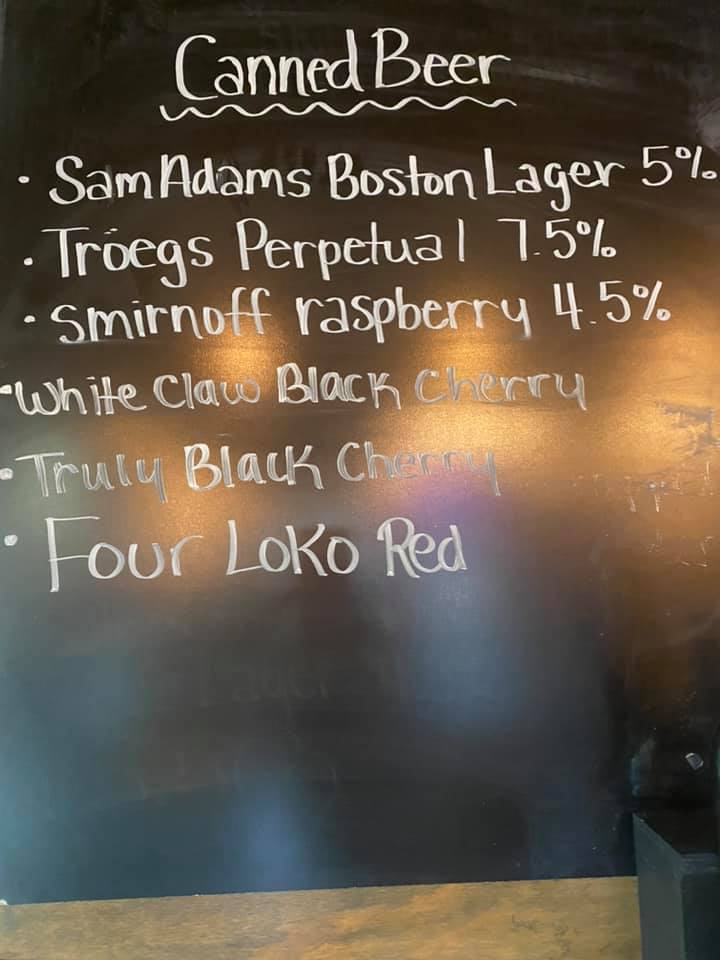 Canned Beer
• Sam Adams Boston Lager 5%
• Tröegs Perpetual 7.5%
• Smirnoff raspberry 4.5%
• White Claw Black Cherry
• Truly Black Cherry
• Four Loko Red